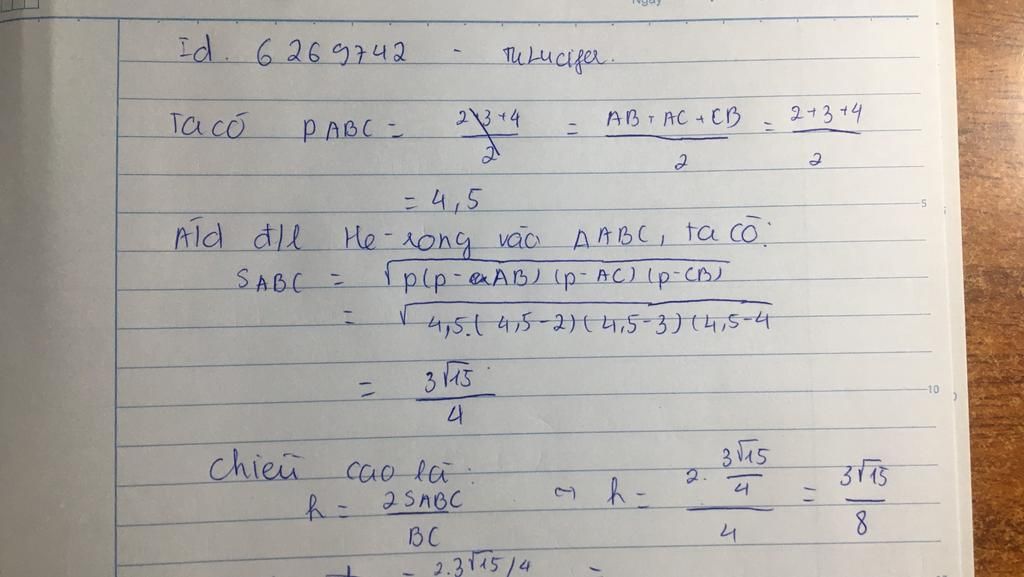 Ngày
Id. 6269742 - TuLucifer.
Ta có pABC = 2+3+4/2 = AB+AC+CB/2 = 2+3+4/2
= 4,5
5
Ád đ/l He-rong vào ΔABC, ta có:
SABC = √p(p-AB)(p-AC)(p-CB)
= √4,5.(4,5-2)(4,5-3)(4,5-4
= 3√15/4
10
Chiều cao là:
h = 2SABC/BC ⇔ h = 2.3√15/4/4 = 3√15/8
= 2.3√15/4 =